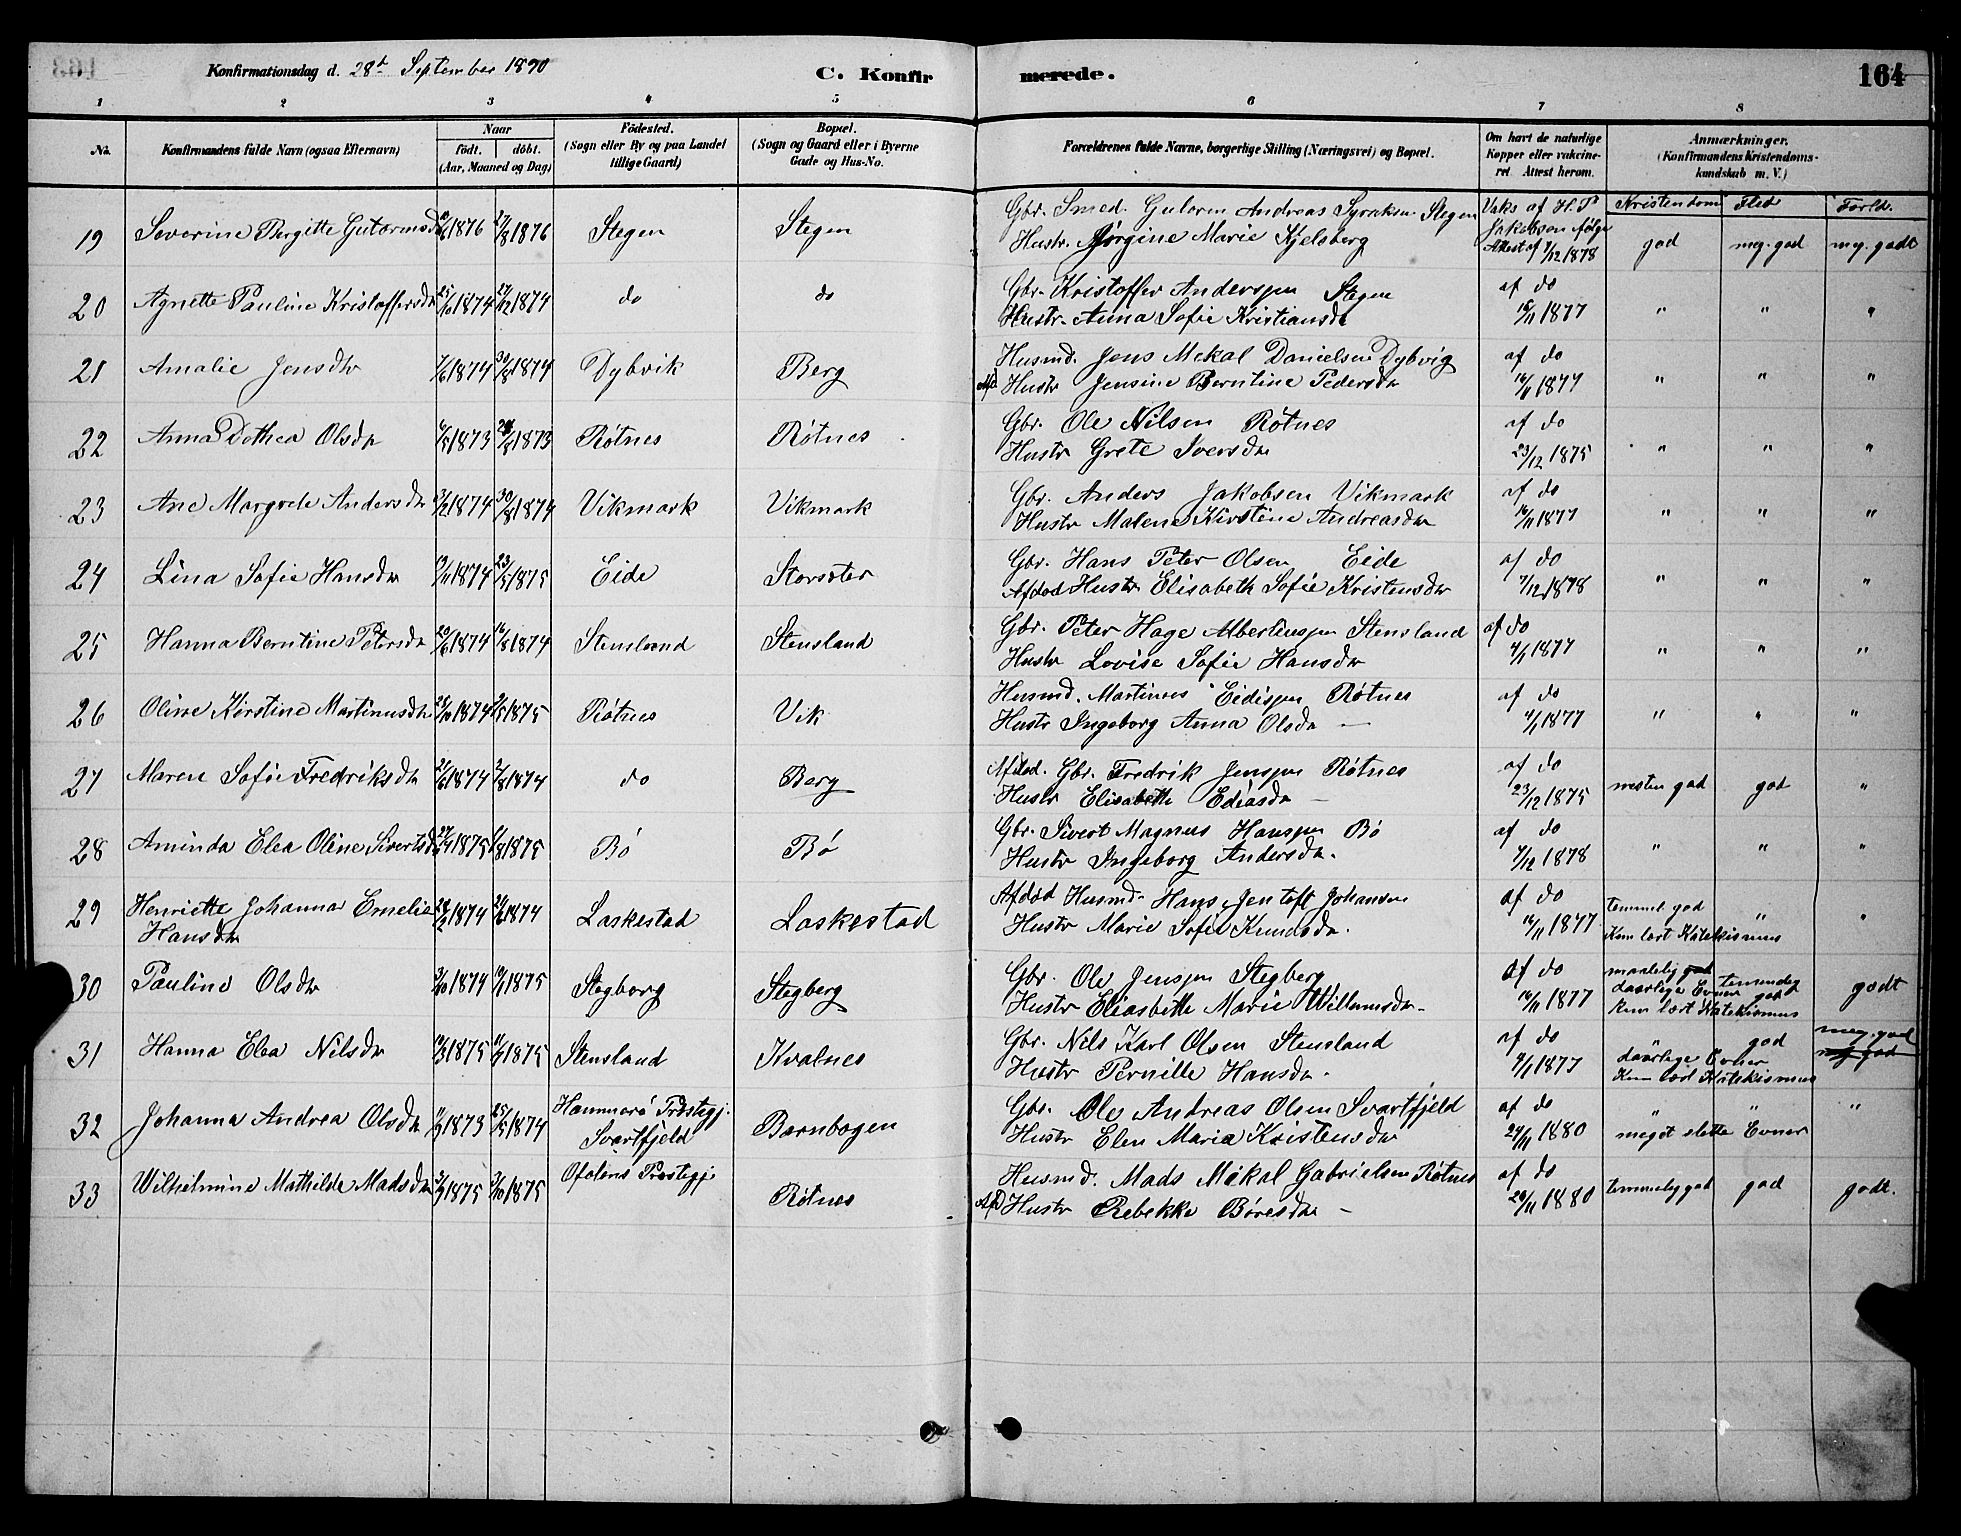 Konfirmationsdag d. 28d September 1890 C. Konfir merede. 164
1 2 3 4 5 6 7 8
No. Konfirmandens fulde Navn (ogsaa Efternavn) Naar födt. döbt. (Aar, Maaned og Dag) Födested. (Sogn eller By og paa Landet tillige Gaard) Bopæl. (Sogn og Gaard eller i Byerne Gade og Hus-No. Forældrenes fulde Navne, borgerlige Stilling (Næringsvei) og Bopæl. Om havt de naturlige Kopper eller vakcineret. Attest herom. Anmærkninger. (Konfirmandens Kristendomskundskab m. V.)
Kristendom Flid Forld.
19 Severine Birgitte Gutormsd 1876 27/8 1876 Stegen Stegen Gbr. Smed. Gutorm Andreas Stegen
Hustr. Jørgine Marie Kjelsberg Vaks af H. P. Jakobsen ifølge Attest af 7/12 1878 god meg. god meg. godt
20 Agnette Pauline Kristoffersdr 25/10 1874 27/12 1874 do do Gbr. Kristoffer Anderssen Stegen
Hustr. Anna Sofie Kristiansdr af do 16/11 1877 " " "
21 Amalie Jensdr 7/6 1874 30/8 1874 Dybvik Berg Husmd. Jens Mekal Danielsen Dybvig
Afd Hustr Jensine Berntine Pedersdr af do 16/11 1877 " " "
22 Anna Dothea Olsdr 1873 1873 Røtnes Røtnes Gbr. Ole Nilsen Røtnes
Hustr Grete Iversdr af do 23/12 1875 " " "
23 Ane Margrete Andersdr 1874 30/8 1874 Vikmark Vikmark Gbr. Anders Jakobsen Vikmark
Hustr Malene Kirstine Andreasdr af do 16/11 1877 " " "
24 Lina Sofie Hansdr 1874 23/5 1875 Eide Storsæter Gbr. Hans Peter Olsen Eide
Afdød Hustr Elisabeth Sofie Kristensdr af do 7/12 1878 " " "
25 Hanna Berntine Petersdr 20/6 1874 16/8 1874 Stensland Stensland Gbr. Peter Hage Albertinssen Stensland
Hustr Lovise Sofie Hansdr af do 4/1 1877 " " "
26 Oline Kirstine Martinusdr 1874 1875 Røtnes Vik Husmd. Martinus Eidissen Røtnes
Hustr Ingeborg Anna Olsdr — af do 4/1 1877 " " "
27 Maren Sofie Fredriksdr 21/6 1874 2/8 1874 do Berg Afdød. Gbr. Fredrik Jenssen Røtnes
Hustr Elisabeth Ediasdr — af do 23/12 1875 nesten god god "
28 Aminda Elea Oline Sivertsd 1875 1875 Bö Bö Gbr. Sivert Magnus Hanssen Bö
Hustr Ingeborg Andersdr. af do 7/12 1878 " " "
29 Henriette Johanna Emelie Hansdr 1874 1874 Laskestad Laskestad Afdød Husmd. Hans Jentoft Johansen
Hustr Marie Sofie Knudsdr. af do 16/11 1877 temmel. god " "
Kun lært Katekismus
30 Pauline Olsdr 1874 1875 Stegborg Stegberg Gbr. Ole Jenssen Stegberg
Hustr Eliasbeth Marie Willumsdr. af do 16/11 1877 maalelig god temmelig god godt
daarlige Evner
kun lært Katekismus
31 Hanna Elea Nilsdr 1875 1875 Stensland Kvalnes Gbr. Nils Karl Olsen Stensland
Hustr Pernille Hansdr. af do 4/1 1877 god meg. god meg god
daarlige Evner
Kun lært Katekismus
32 Johanna Andrea Olsdr 1873 25/5 1874 Hammerö Præstegj. Svartfjeld Barnbogen Gbr. Ole Andreas Olsen Svartfjeld
Hustr Elen Maria Kristensdr af do 24/11 1880 " " "
meget slette Evner
33 Wilhelmine Mathilde Madsdr 1875 1875 Ofotens Præstegj Røtnes Husmd. Mads Mekal Gabrielsen Røtnes
Afd Hustr Rebekka Böresdr — af do 24/11 1880 temmelig god god godt.